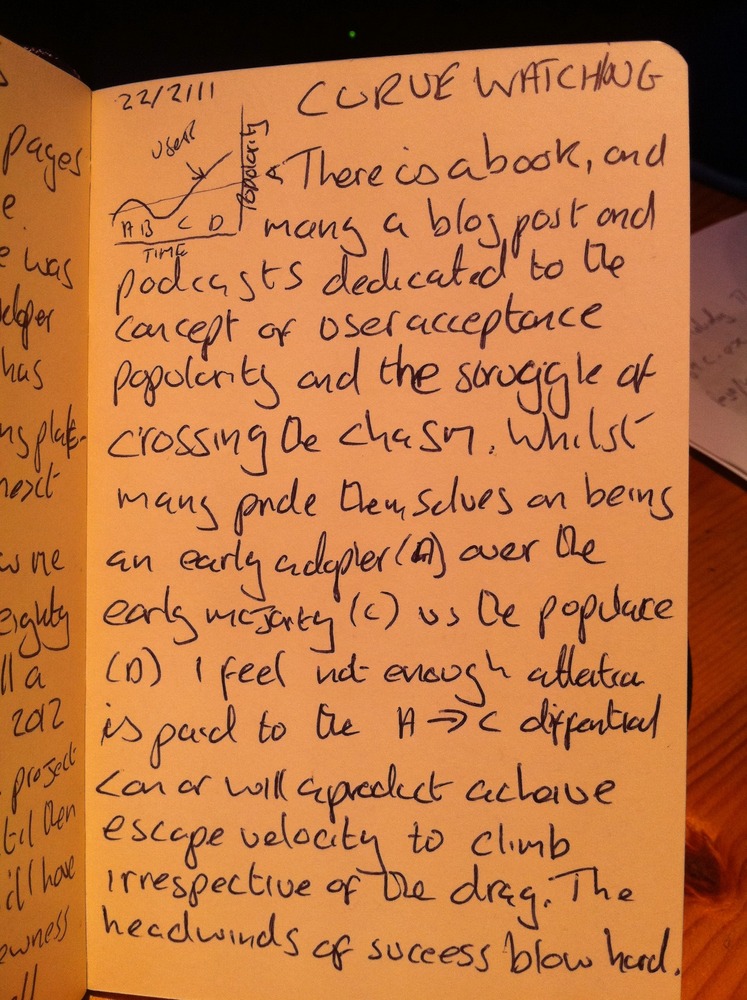 pages
e
e was
eloper
has
ns plat-
next
w me
eighty
ll a
2012
project
til then
ill have
ewness
ll
22/2/11
CURVE WATCHING
USER
Popularity
A B C D
TIME
There is a book, and
many a blog post and
podcasts dedicated to the
concept of user acceptance
popularity and the struggle of
crossing the chasm. Whilst
many pride themselves on being
an early adopter (A) over the
early majority (C) vs the populace
(D) I feel not enough attention
is paid to the A → C differential
can or will a product achieve
escape velocity to climb
irrespective of the drag. The
headwinds of success blow hard.